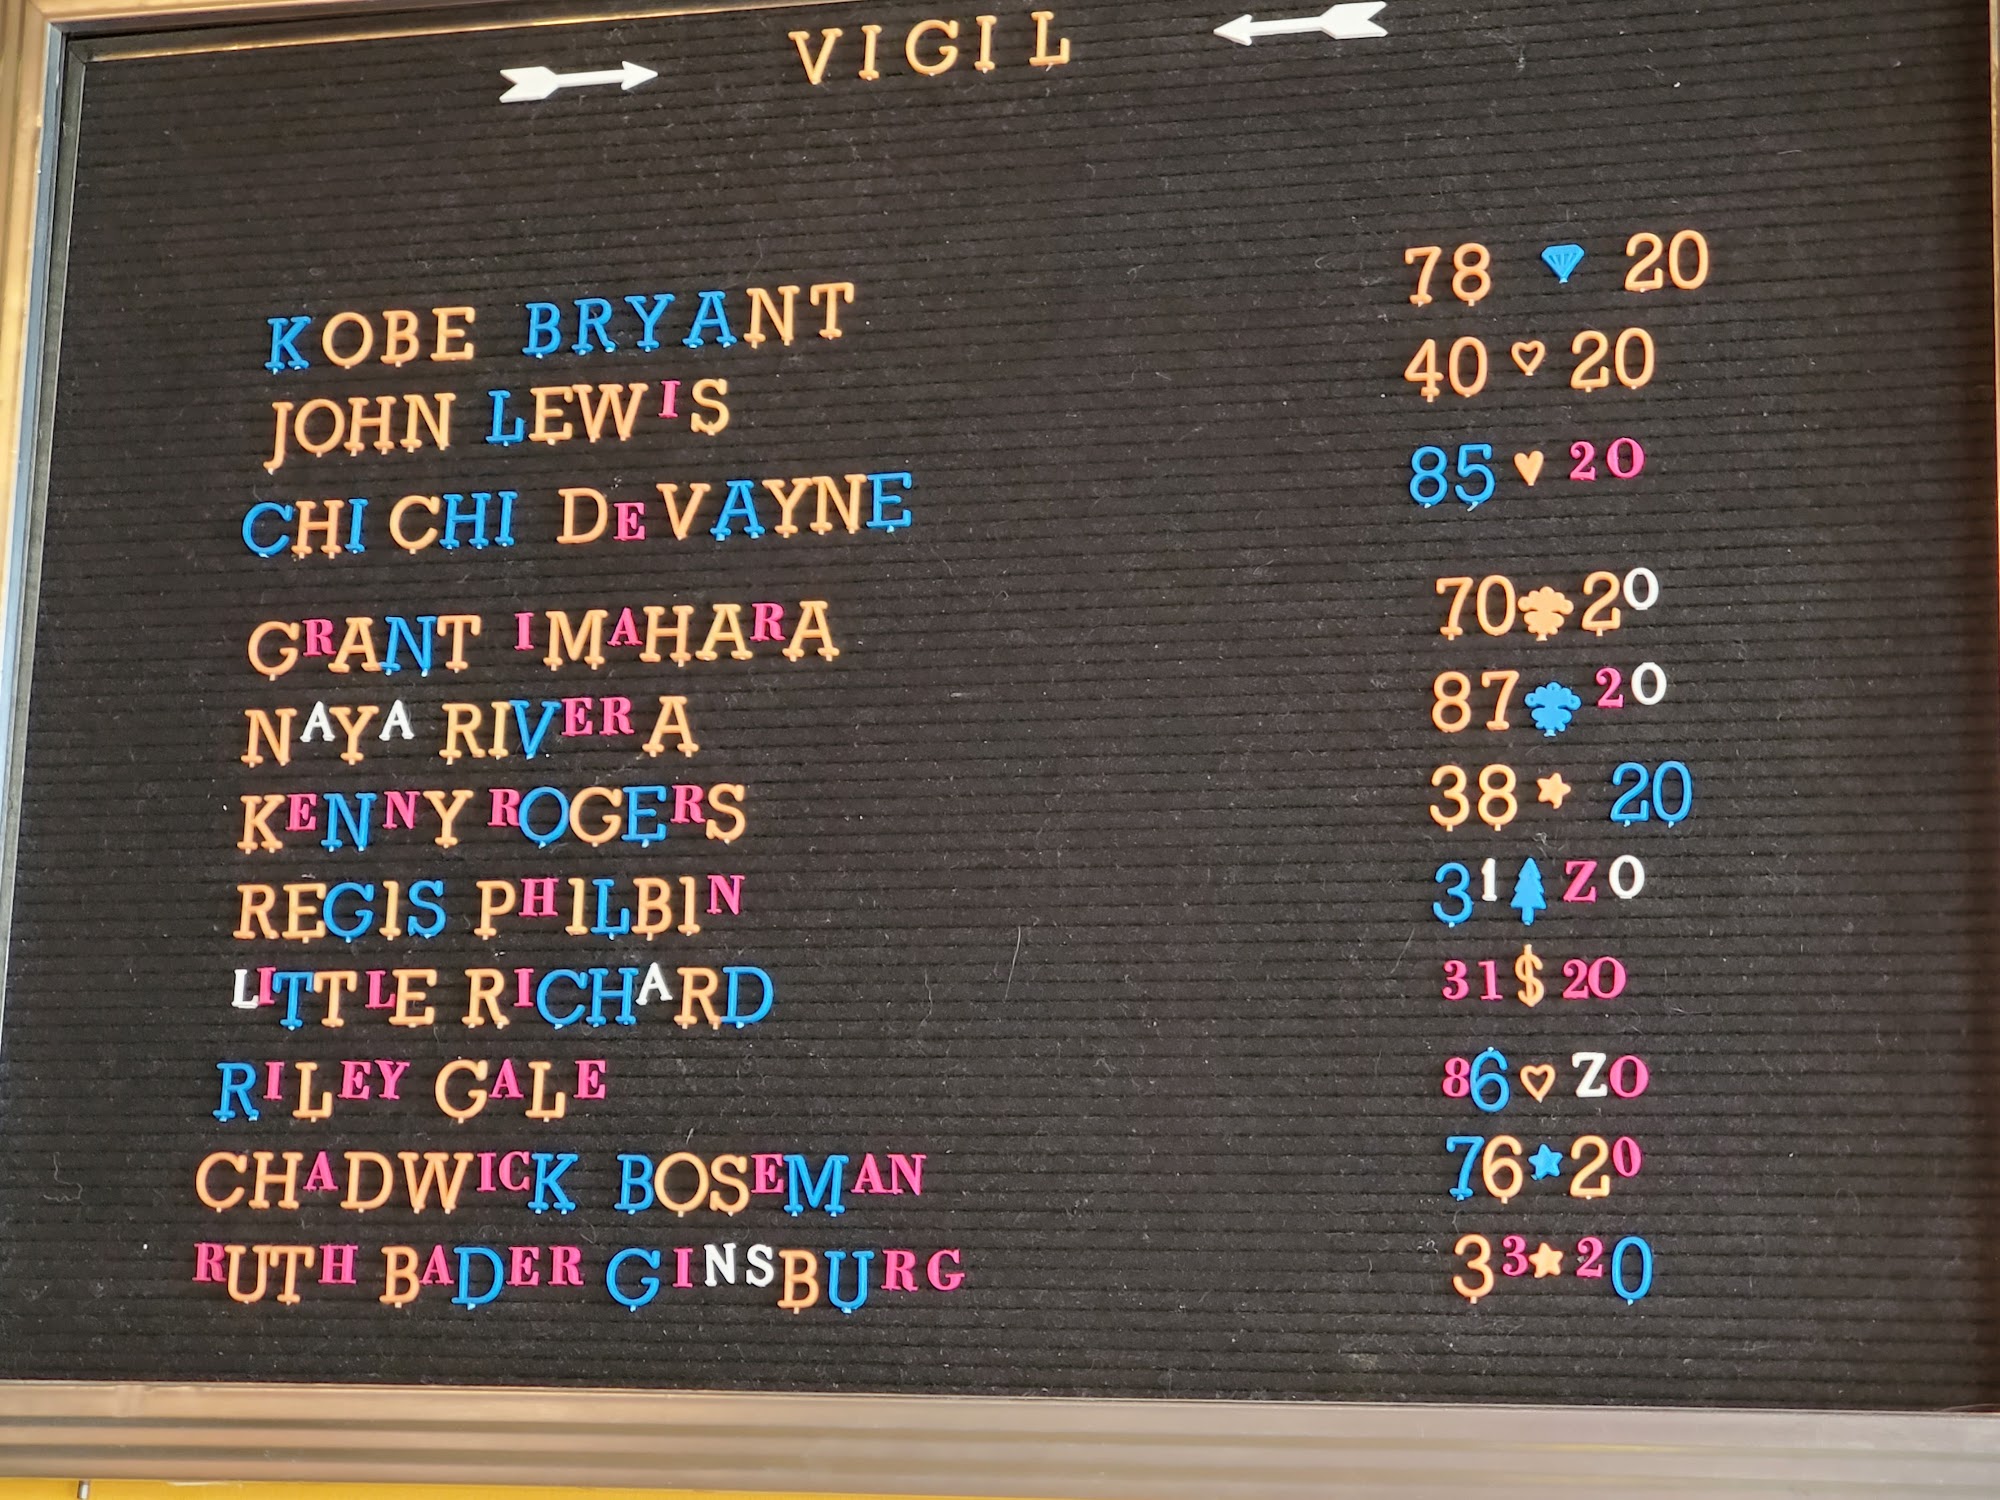 VIGIL
KOBE BRYANT 78 20
JOHN LEWIS 40 20
CHI CHI DEVAYNE 85 20
GRANT IMAHARA 70 20
NAYA RIVERA 87 20
KENNY ROGERS 38 20
REGIS PHILBIN 31 Z0
LITTLE RICHARD 31 $ 20
RILEY GALE 86 Z0
CHADWICK BOSEMAN 76 20
RUTH BADER GINSBURG 33 20